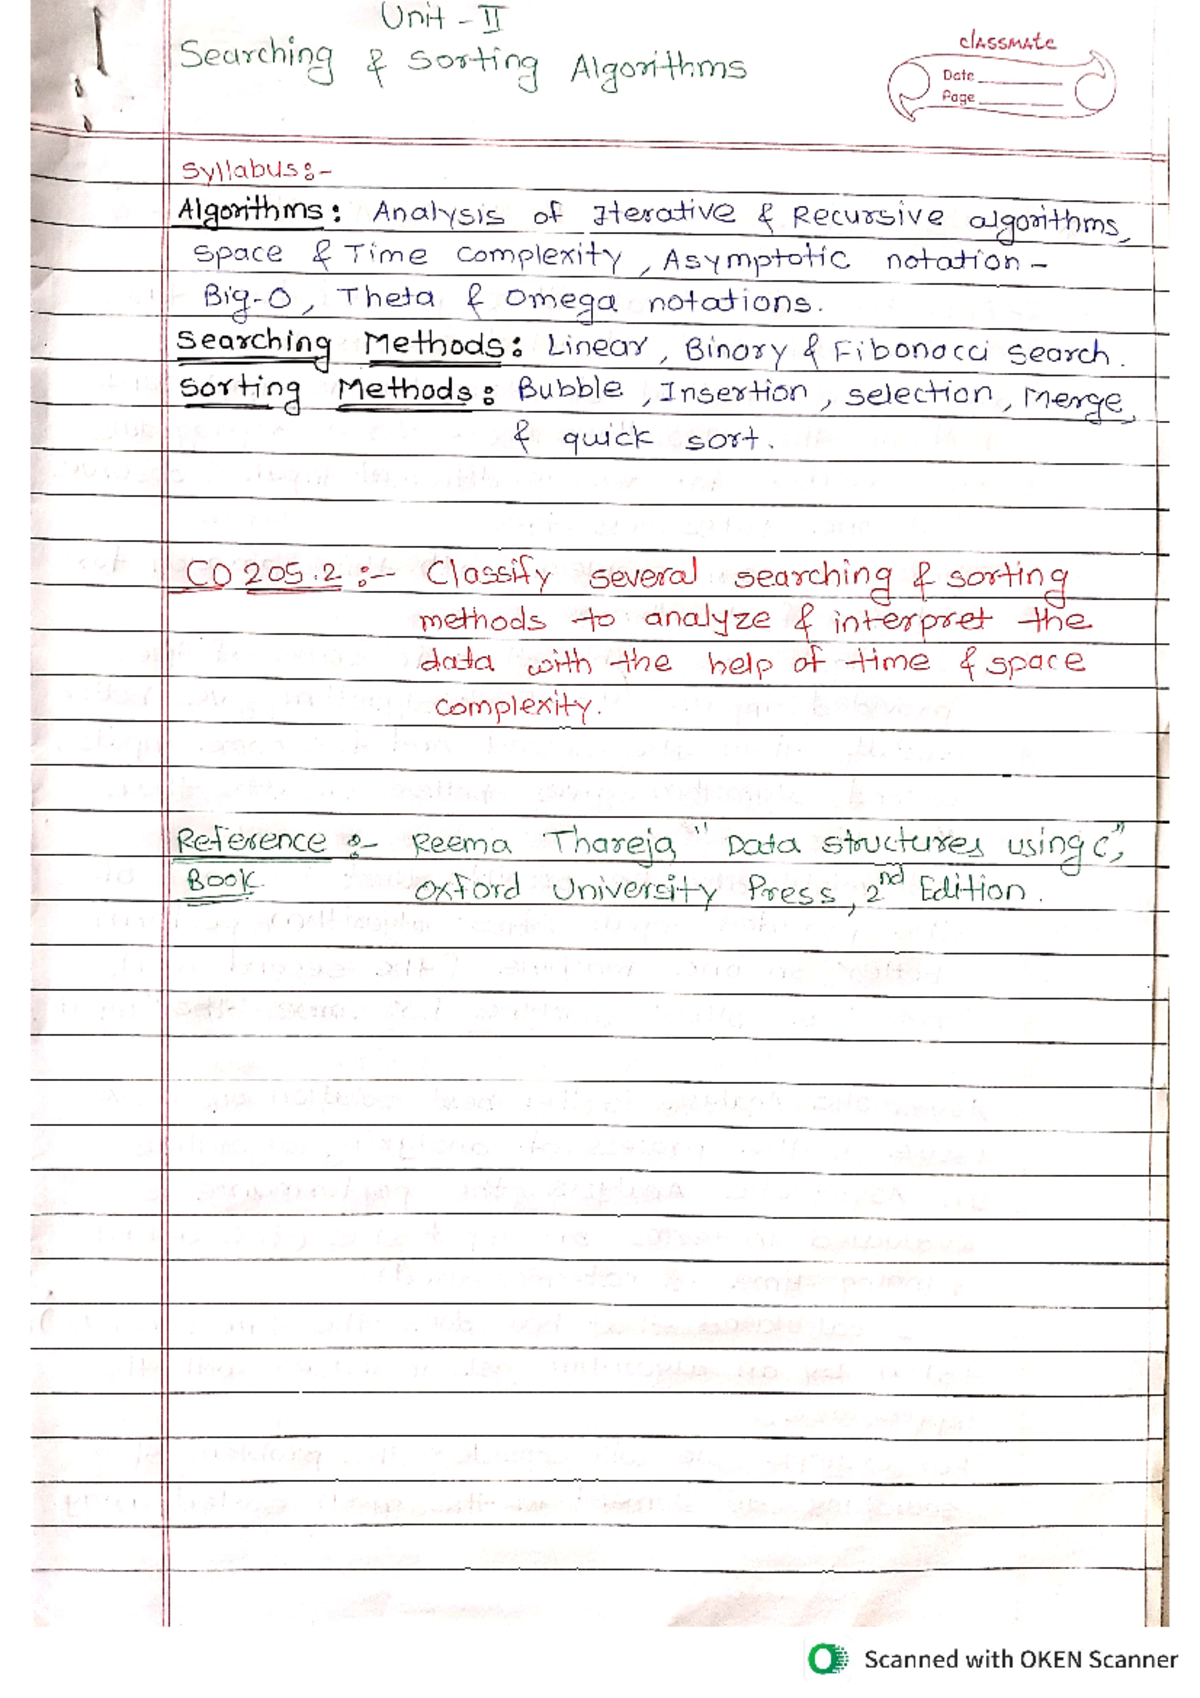 Unit - II
Searching & Sorting Algorithms
classmate
Date
Page
Syllabus:-
Algorithms: Analysis of Iterative & Recursive algorithms,
space & Time complexity, Asymptotic notation -
Big-O, Theta & Omega notations.
Searching Methods: Linear, Binary & Fibonacci search.
Sorting Methods: Bubble, Insertion, selection, Merge,
& quick sort.
CO 205.2 :- Classify several searching & sorting
methods to analyze & interpret the
data with the help of time & space
complexity.
Reference :- Reema Thareja, "Data structures using C",
Book Oxford University Press, 2nd Edition.
Scanned with OKEN Scanner